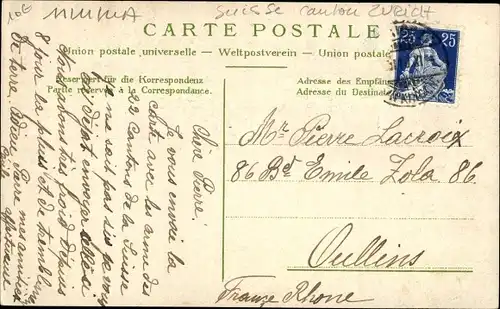 10€ MINMA Suisse canton Zurich
CARTE POSTALE
Union postale universelle – Weltpostverein – Union postale
Reserviert für die Korrespondenz
Partie réservée à la Correspondance.
Adresse des Empfän
Adresse du Destinat
25 25
Mr Pierre Lacroix
86 Bd Emile Zola 86
Oullins
France Rhone
Cher Pierre!
Je vous envoi la
carte avec les arme des
22 Cantons de la Suisse
je ne sait pas si je vous
l'ai déja envoyer
Nous avons très froid depuis
8 jour la pluie et de
de terre.